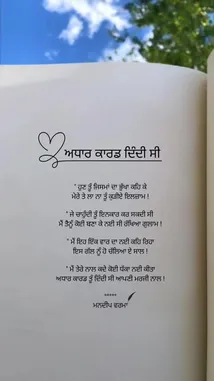 ਅਧਾਰ ਕਾਰਡ ਦਿੰਦੀ ਸੀ
" ਹੁਣ ਤੂੰ ਜਿਸਮਾਂ ਦਾ ਭੁੱਖਾ ਕਹਿ ਕੇ
ਮੇਰੇ ਤੇ ਲਾ ਨਾ ਤੂੰ ਕੁੜੀਏ ਇਲਜ਼ਾਮ !
" ਜੇ ਚਾਹੁੰਦੀ ਤੂੰ ਇਨਕਾਰ ਕਰ ਸਕਦੀ ਸੀ
ਮੈਂ ਤੈਨੂੰ ਕੋਈ ਬਣਾ ਕੇ ਨਈ ਸੀ ਰੱਖਿਆ ਗੁਲਾਮ !
" ਮੈਂ ਇਹ ਇੱਕ ਵਾਰ ਦਾ ਨਈ ਕਹਿ ਰਿਹਾ
ਇਸ ਗੱਲ ਨੂੰ ਹੋ ਚੱਲਿਆ ਏ ਸਾਲ !
" ਮੈਂ ਤੇਰੇ ਨਾਲ ਕਦੇ ਕੋਈ ਧੱਕਾ ਨਈ ਕੀਤਾ
ਅਧਾਰ ਕਾਰਡ ਤੂੰ ਦਿੰਦੀ ਸੀ ਆਪਣੀ ਮਰਜੀ ਨਾਲ !
*****
ਮਨਦੀਪ ਵਰਮਾ